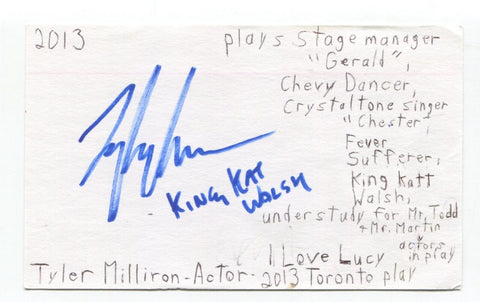 2013
plays Stage manager
"Gerald",
Chevy Dancer,
Crystaltone singer
"Chester",
Fever
Sufferer,
King Katt
Walsh,
understudy for Mr. Todd
+ Mr. Martin
actors
in play
KING KAT
WALSH
I Love Lucy
Tyler Milliron-Actor-2013 Toronto play